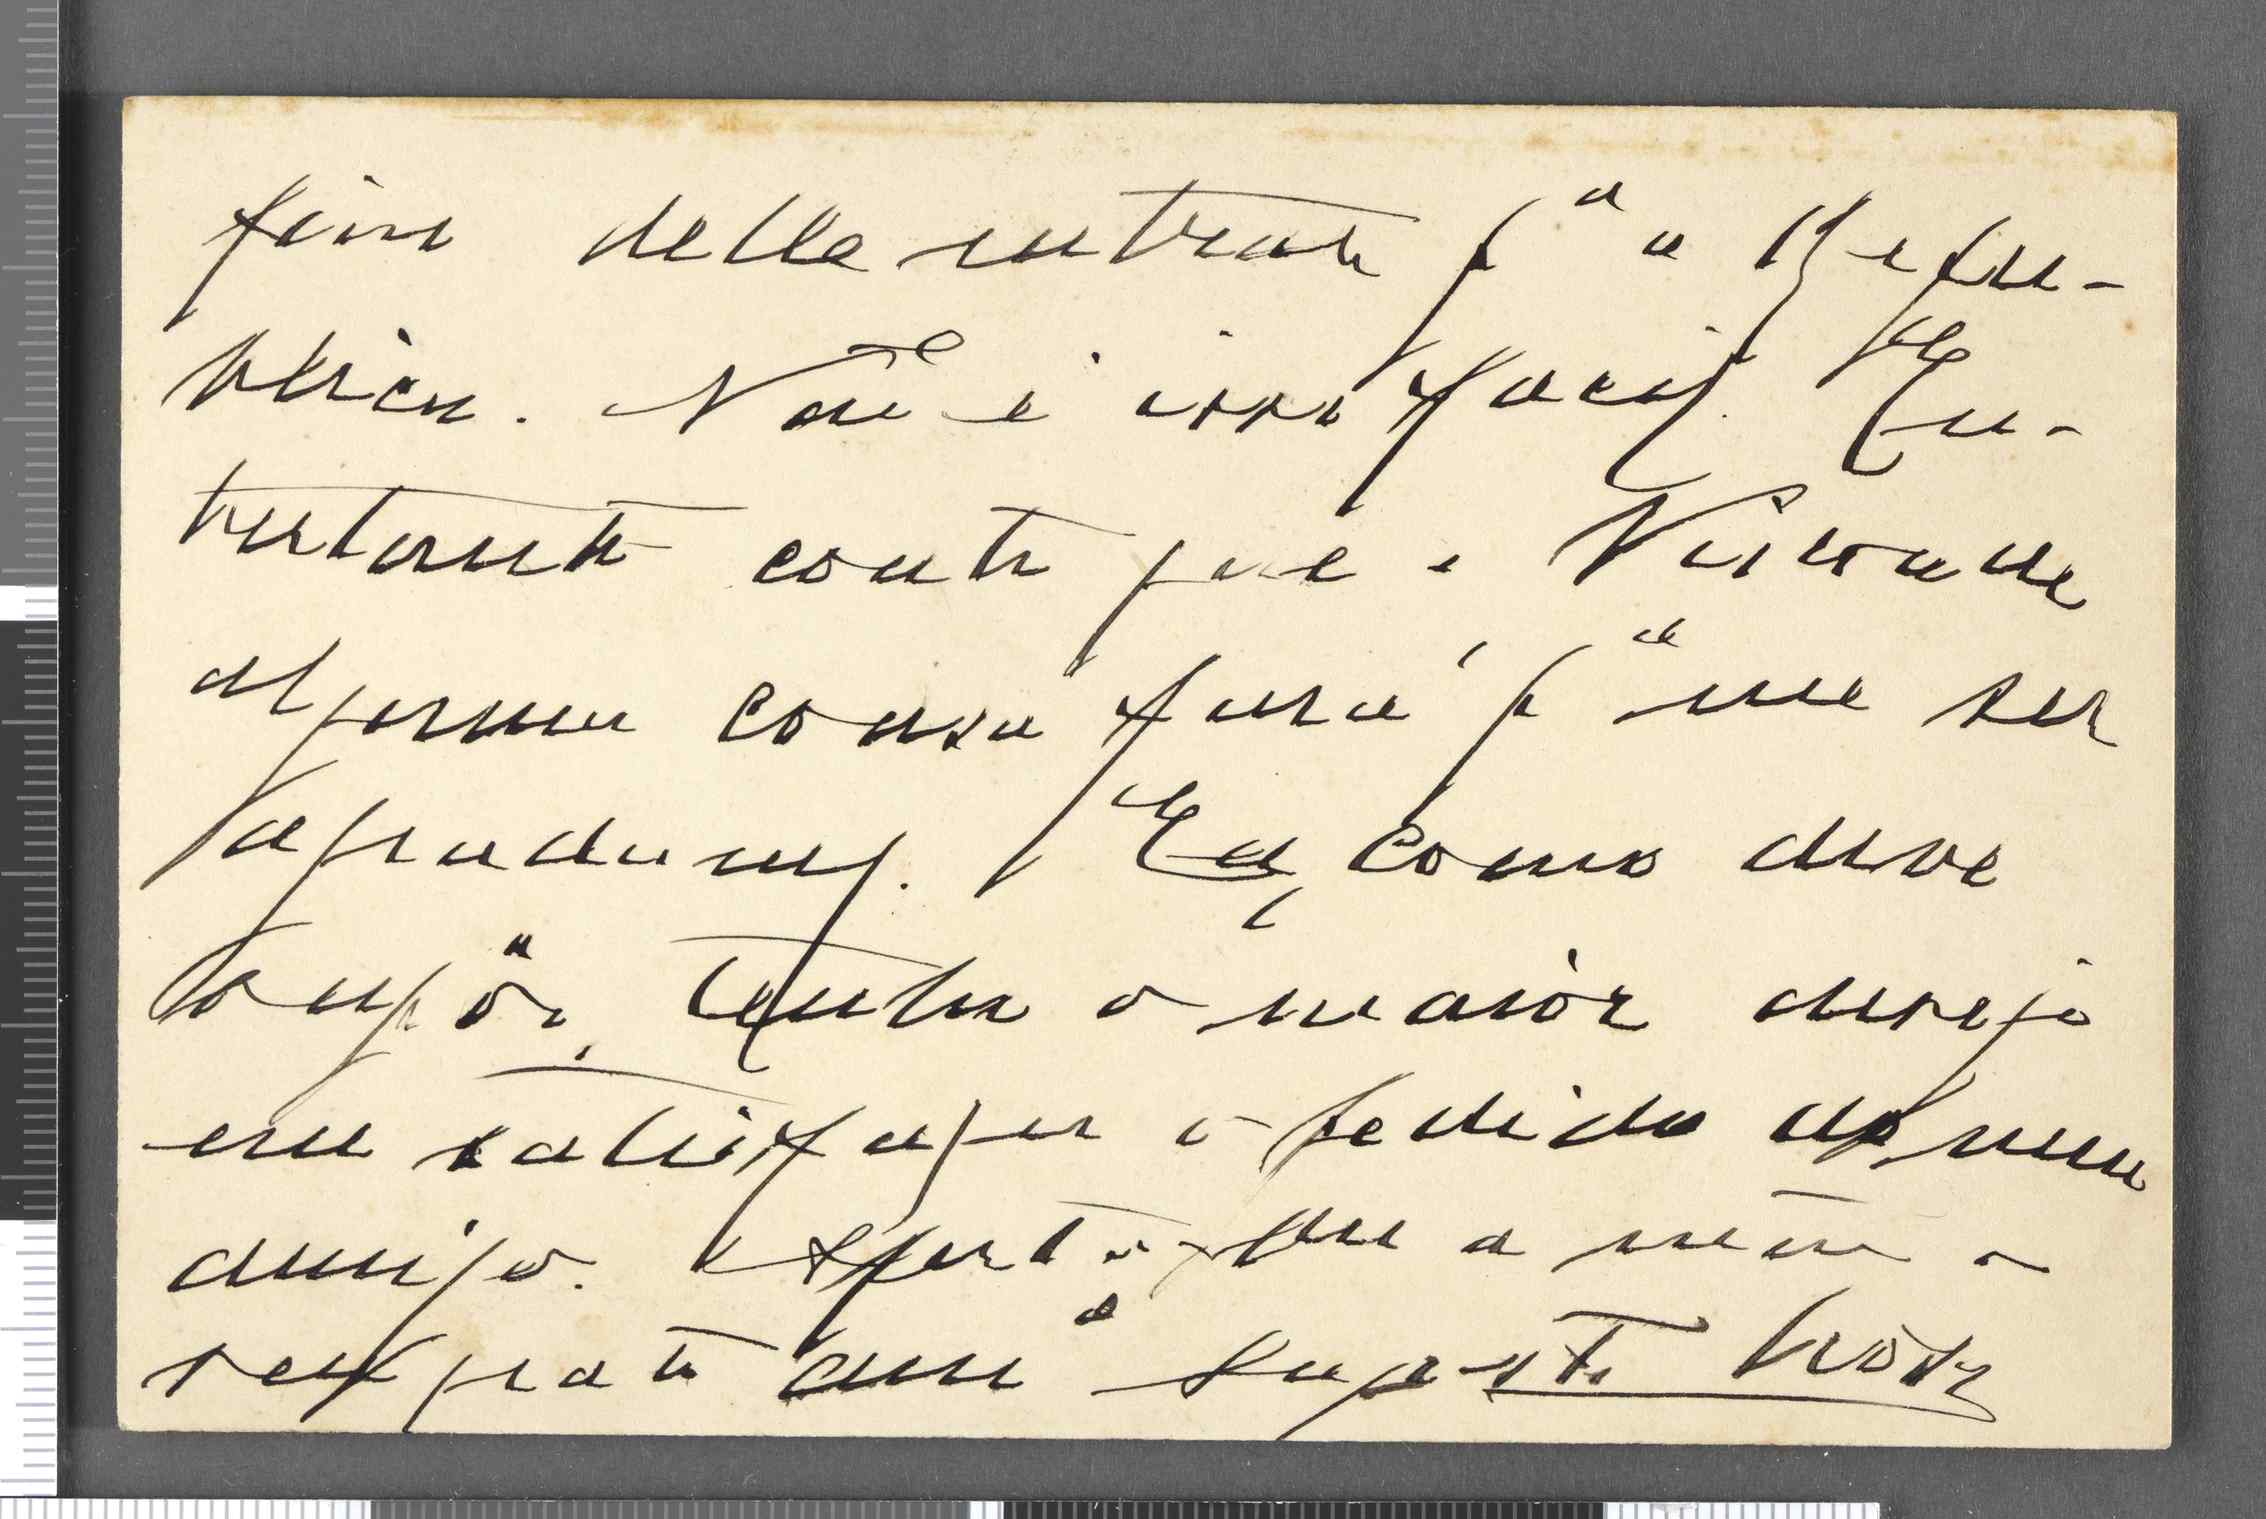 fim delle entrar p.ª a Repu-
blica. Não é isso facil. En-
tretanto conto que o Visconde
alguma cousa fará p.ª me ser
agradavel. Eu, como deve
suppôr, tenho o maior desejo
em satisfazer o pedido do meu
amigo. Aperto-lhe a mão o
seu grato am.º Augusto